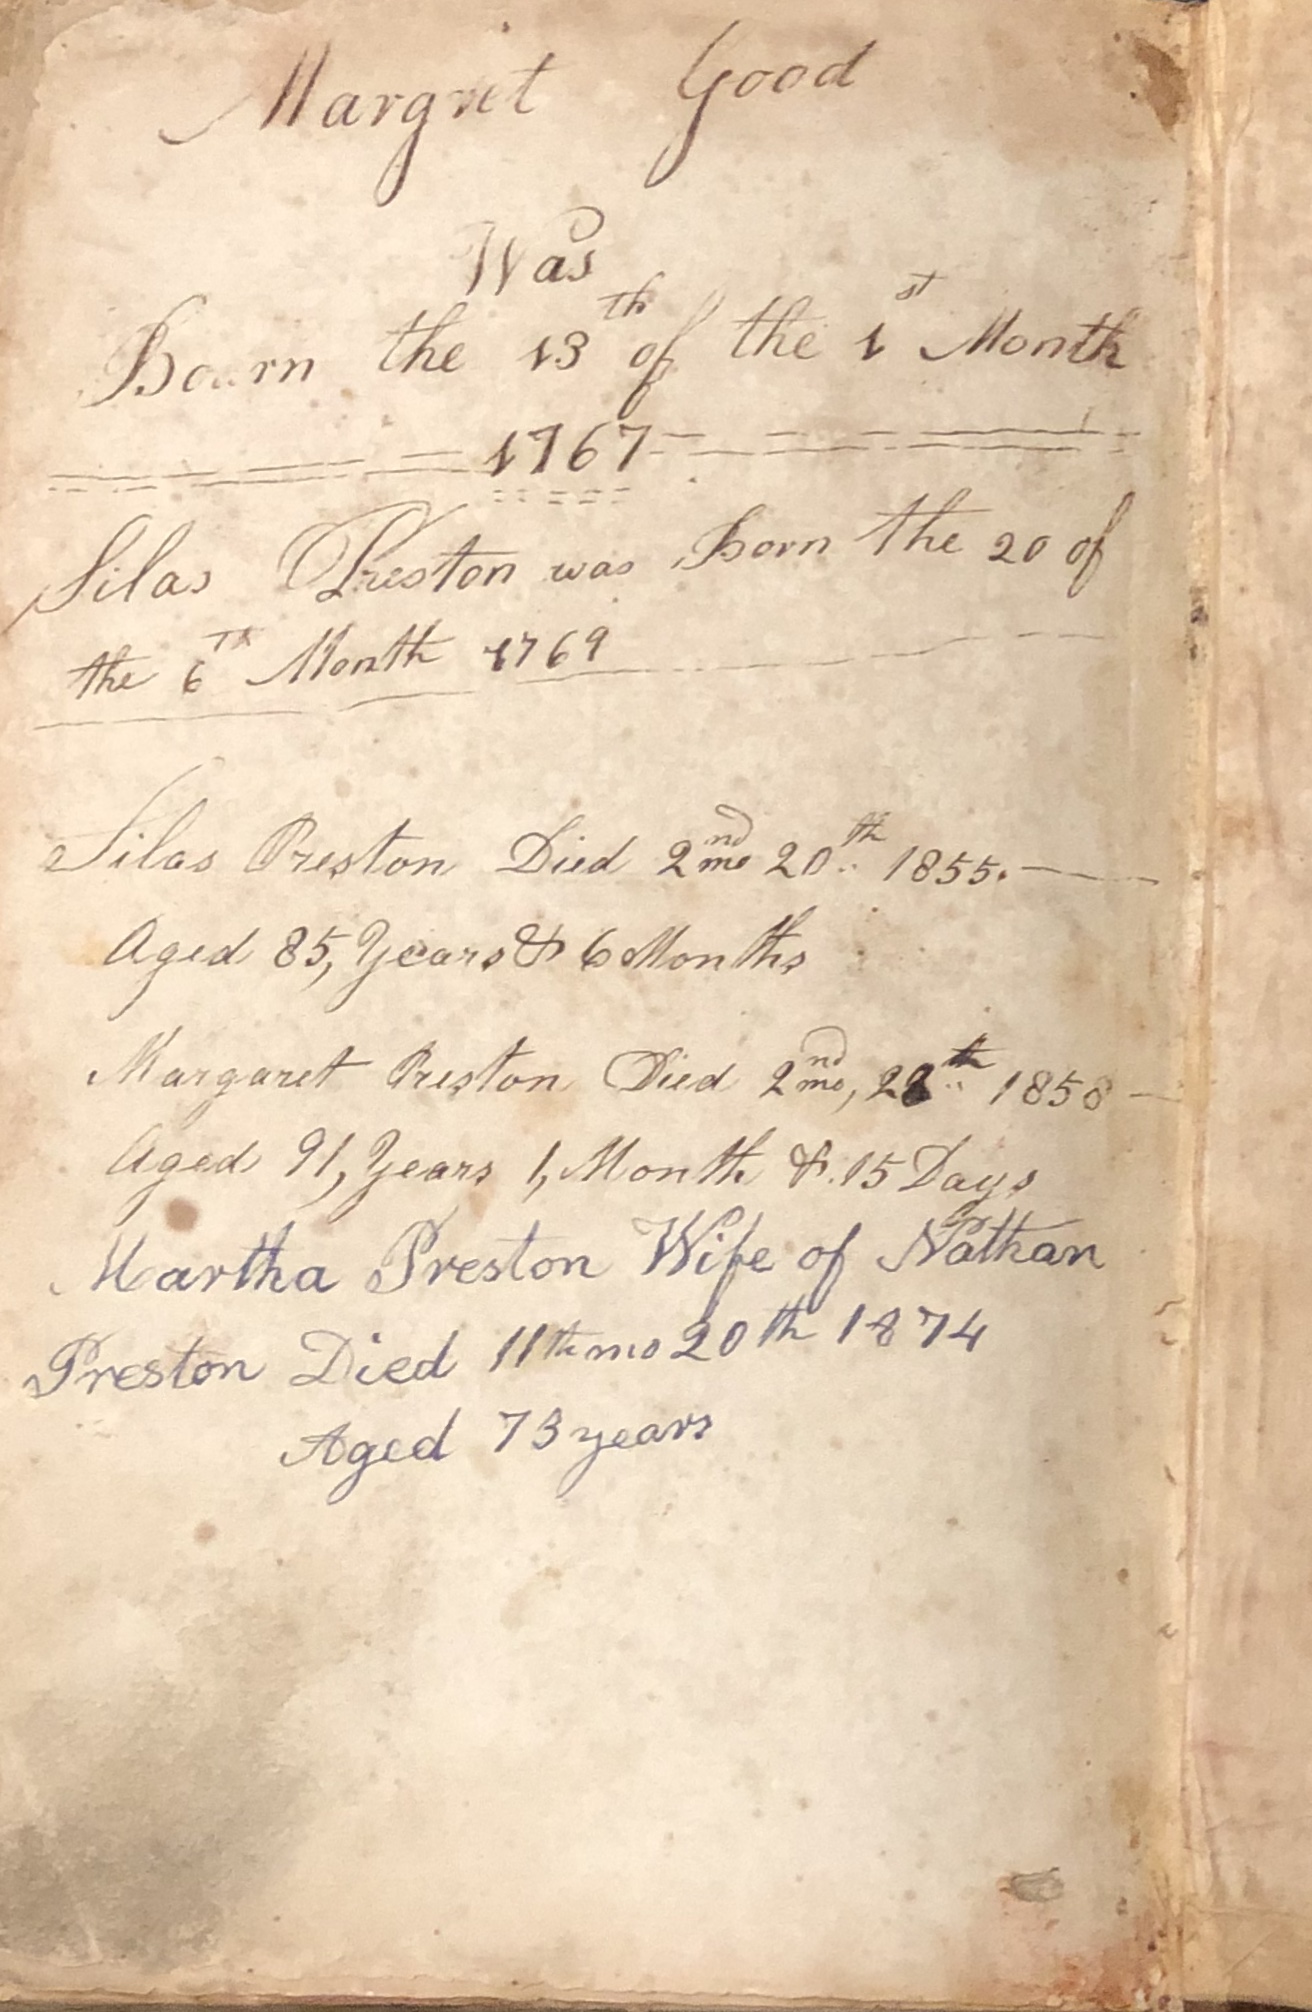 Margret Good
Was
Bourn the 13th of the 1st Month
1767
Silas Preston was Born the 20 of
the 6th Month 1769
Silas Preston Died 2nd mo 20th 1855.
Aged 85, Years & 6 Months
Margaret Preston Died 2nd mo, 28th 1858
Aged 91, Years 1, Month & 15 Days
Martha Preston Wife of Nathan
Preston Died 11th mo 20th 1874
Aged 73 years